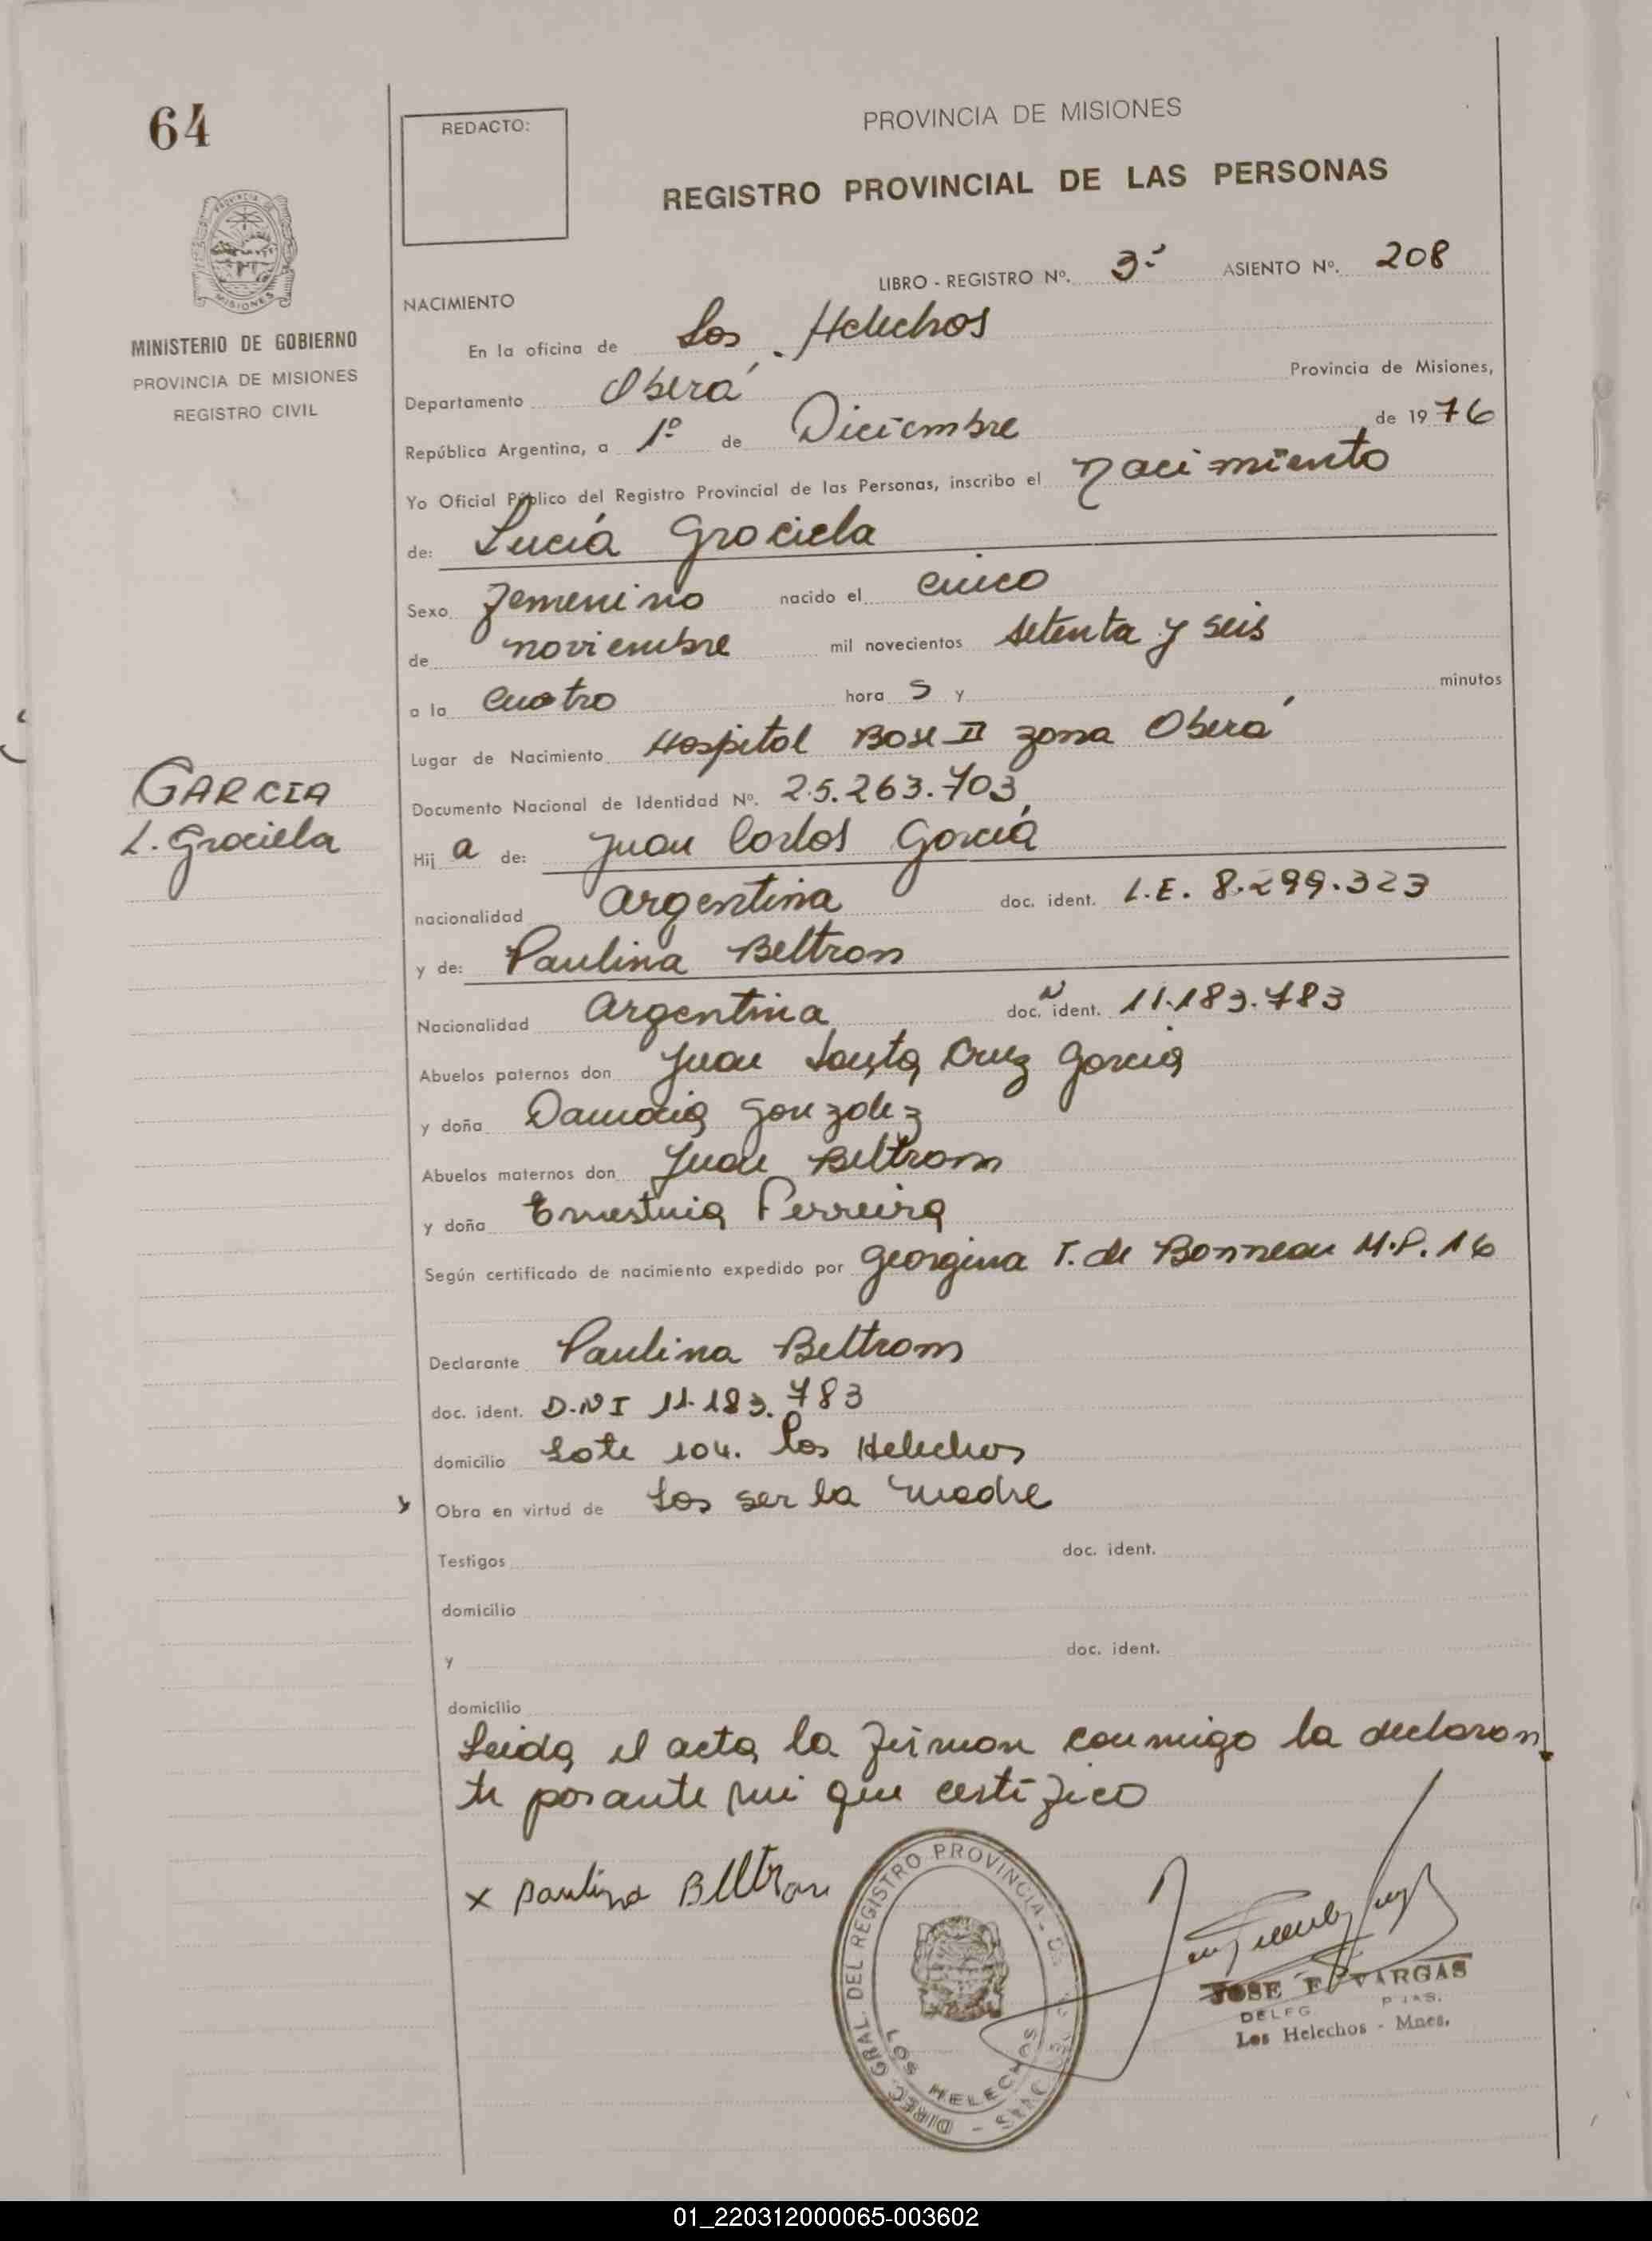 64
REDACTO:
PROVINCIA DE MISIONES
REGISTRO PROVINCIAL DE LAS PERSONAS
MISIONES
MINISTERIO DE GOBIERNO
PROVINCIA DE MISIONES
REGISTRO CIVIL
LIBRO - REGISTRO Nº. 3º ASIENTO Nº. 208
NACIMIENTO
En la oficina de Los Helechos
Departamento Oberá Provincia de Misiones,
República Argentina, a 1º de Diciembre de 1976
Yo Oficial Público del Registro Provincial de las Personas, inscribo el nacimiento
de: Lucía Graciela
Sexo Femenino nacido el cinco
de noviembre mil novecientos setenta y seis
a la cuatro hora s y minutos
Lugar de Nacimiento Hospital Base II zona Oberá
Documento Nacional de Identidad Nº. 25.263.703
GARCIA
L. Graciela
Hij a de: Juan Carlos García
nacionalidad argentina doc. ident. L.E. 8.299.323
y de: Paulina Beltran
Nacionalidad argentina doc. ident. 11.183.783
Abuelos paternos don Juan Santa Cruz Garcia
y doña Damacia Gonzalez
Abuelos maternos don Juan Beltram
y doña Ernestina Ferreira
Según certificado de nacimiento expedido por Georgina T. de Bonneau M.P. 16
Declarante Paulina Beltram
doc. ident. D.N I 11.183.783
domicilio Lote 104. Los Helechos
Obra en virtud de Los ser la madre
Testigos doc. ident.
domicilio
y doc. ident.
domicilio
Leida el acta la firman conmigo la declaran
te por ante mi que certifico
x Paulina Beltran
DIREC. GRAL. DEL REGISTRO PROVINCIAL DE LAS PERSONAS
LOS HELECHOS
JOSE F. VARGAS
DELEG.
Los Helechos - Mnes.
01_220312000065-003602